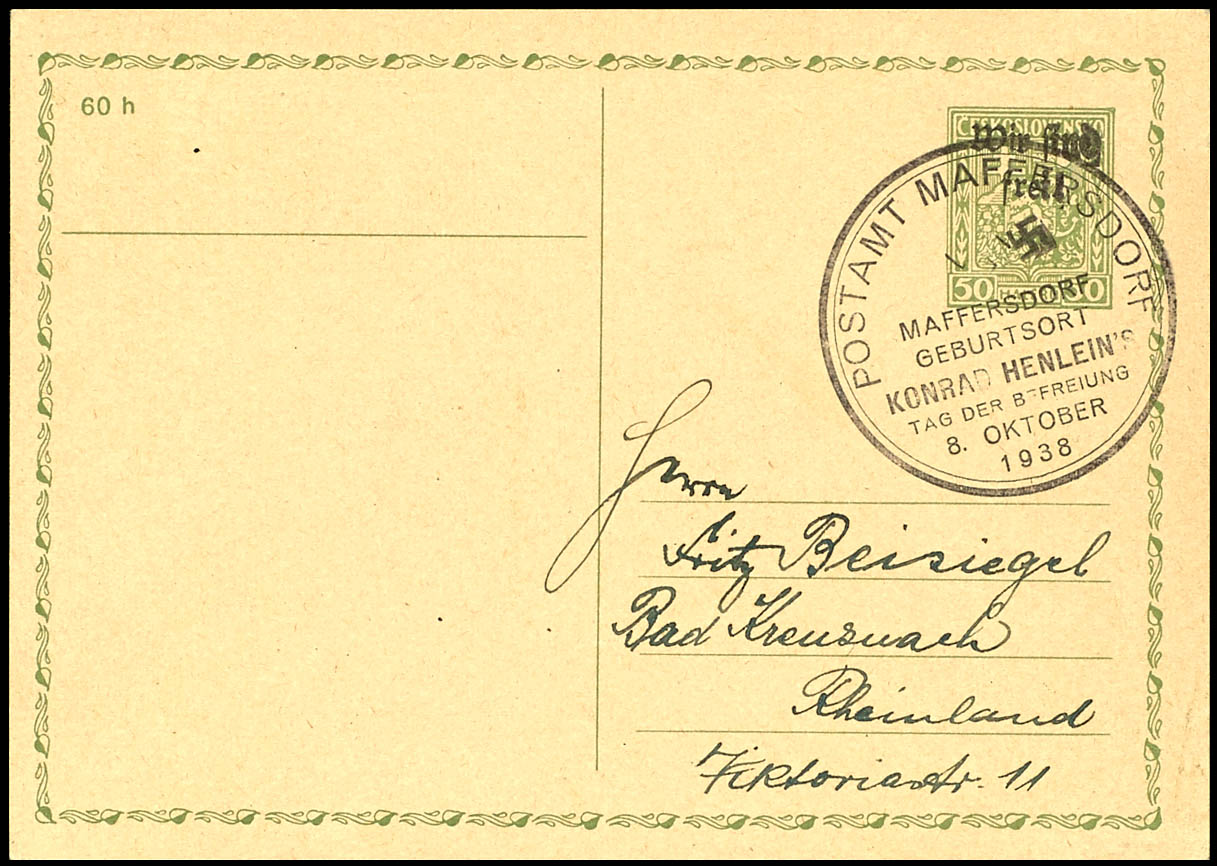 60 h
ČESKOSLOVENSKO
Wir sind
frei!
50 50
POSTAMT MAFFERSDORF
MAFFERSDORF
GEBURTSORT
KONRAD HENLEIN'S
TAG DER BEFREIUNG
8. OKTOBER
1938
Herrn
Fritz Beisiegel
Bad Kreuznach
Rheinland
Viktoriastr. 11